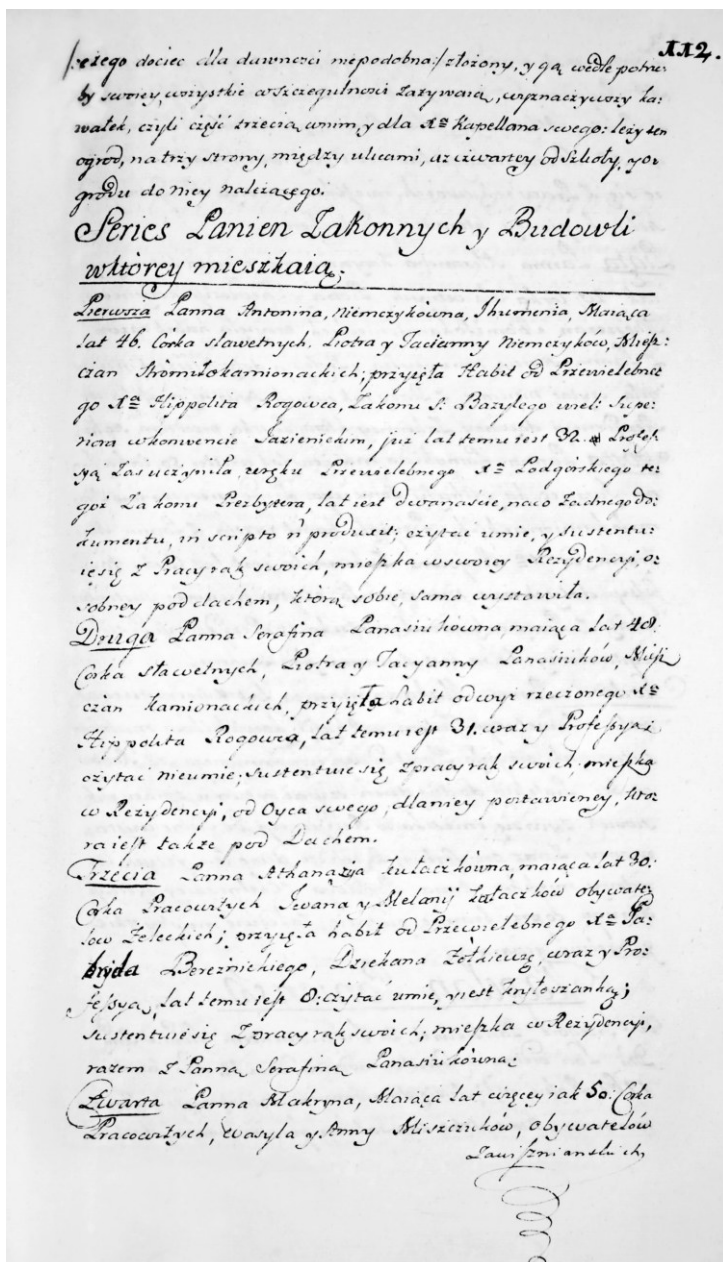 112.
/:czego dociec dla dawności niepodobna:/ złożony, y gą wedle potrze
by swoiey, wszystkie w szczegulności zażywaią, wyznaczywszy ka:
wałek, czyli część trzecią w nim, y dla Xa Kapellana swego: leży ten
ogrod, na trzy strony, między ulicami, az czwartey od Szkoły, y o:
grodu do niey należącego.
Series Panien Zakonnych y Budowli
w którey mieszkaią;
Pierwsza Panna Antonina, Niemczykówna, Ihumenia, Maiąca
lat 46. Córka sławetnych, Piotra y Tacianny Niemczyków, Miesz:
czan Strómiłokamionackich; przyięła Habit od Przewielebne
go Xa Hippolita Rogowca, Zakonu S: Bazylego wiel: Supe:
riora w konwencie Jazienickim, już lat temu iest 32. Profes
syą Zaś uczyniła w ręku Przewielebnego Xa Podgórskiego te:
goż Zakonu Prezbytera, lat iest dwanaście, na co Żadnego do:
kumentu, in scripto ñ produxit; czytać umie, y sustentu:
ie się z Pracy rąk swoich, mieszka w swoiey Rezydencyi, o:
sobney pod dachem, którą sobie, sama wystawiła.
Druga Panna Serafina Panasiukówna, maiąca Lat 40:
Córka sławetnych, Piotra y Tacyanny Panasiuków, Miesz
czan Kamionackich, przyięła habit od wyż rzeczonego Xa
Hippolita Rogowca, lat temu iest 31. wraz y Professyą;
czytać nieumie; sustentuie się z pracy rąk swoich, mieszka
w Rezydencyi, od Oyca swego, dla niey postawioney, któ:
ra iest także pod Dachem.
Trzecia Panna Athanazya Kułaczkówna, maiąca lat 30:
Córka Pracowitych Iwana y Melanij Kułaczków obywate:
lów Żeleckich; przyięła habit od Przewielebnego Xa Da:
wyda Bereźnickiego, Dziekana Żółkiewę, wraz y Pro:
fessyą, lat temu iest 8: czytać umie, y iest kryłoszanką;
sustentuie się z pracy rąk swoich; mieszka w Rezydencyi,
razem z Panną Serafiną Panasiukówną;
Czwarta Panna Makryna, Maiąca lat więcey iak 50: Córka
Pracowitych, Wasyla y Anny Miszczuków, Obywatelów
Zawisznianskich